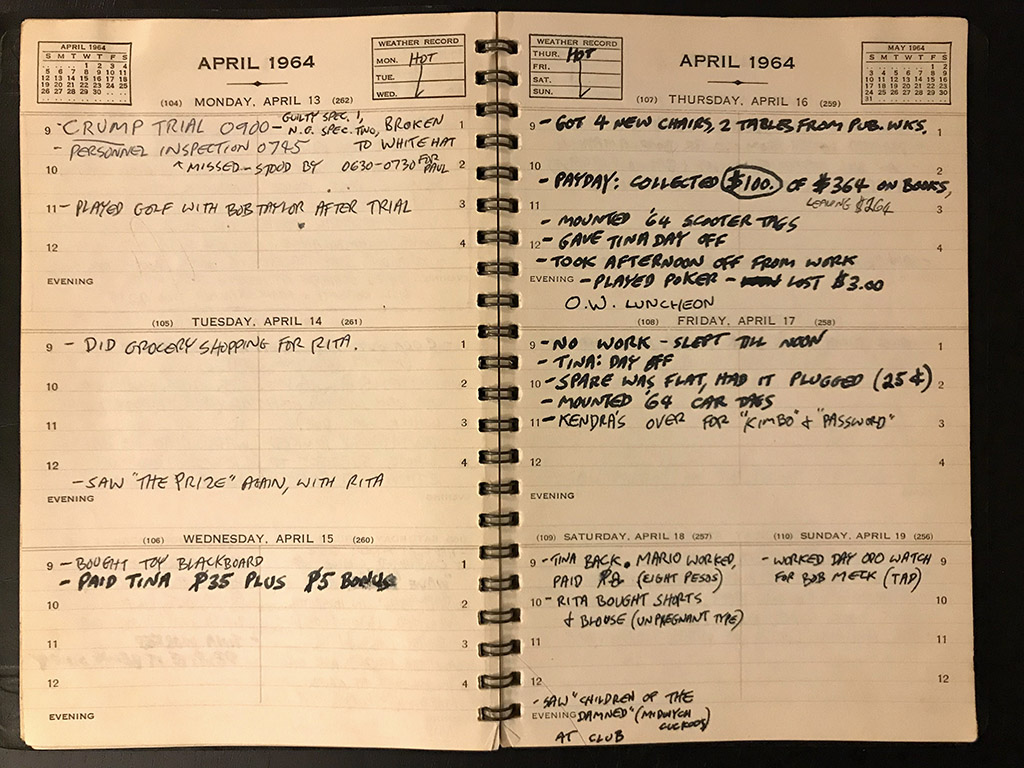 APRIL 1964
S M T W T F S
1 2 3 4
5 6 7 8 9 10 11
12 13 14 15 16 17 18
19 20 21 22 23 24 25
26 27 28 29 30
APRIL 1964
WEATHER RECORD
MON. HOT
TUE.
WED.
(104) MONDAY, APRIL 13 (262)
9 - CRUMP TRIAL 0900 - GUILTY SPEC. 1, 1
N.G. SPEC. TWO, BROKEN
TO WHITE HAT
- PERSONNEL INSPECTION 0745
10 ↑ MISSED - STOOD BY 0630-0730 FOR PAUL 2
11 - PLAYED GOLF WITH BOB TAYLOR AFTER TRIAL 3
12 4
EVENING
(105) TUESDAY, APRIL 14 (261)
9 - DID GROCERY SHOPPING FOR RITA. 1
10 2
11 3
12 4
- SAW "THE PRIZE" AGAIN, WITH RITA
EVENING
(106) WEDNESDAY, APRIL 15 (260)
9 - BOUGHT TOY BLACKBOARD 1
- PAID TINA ₱35 PLUS ₱5 BONUS
10 2
11 3
12 4
EVENING
WEATHER RECORD
THUR. HOT
FRI.
SAT.
SUN.
APRIL 1964
MAY 1964
S M T W T F S
1 2
3 4 5 6 7 8 9
10 11 12 13 14 15 16
17 18 19 20 21 22 23
24 25 26 27 28 29 30
31
(107) THURSDAY, APRIL 16 (259)
9 - GOT 4 NEW CHAIRS, 2 TABLES FROM PUB. WKS. 1
10 2
- PAYDAY: COLLECTED $100. OF $364 ON BOOKS,
LEAVING $264
11 3
- MOUNTED '64 SCOOTER TAGS
12 - GAVE TINA DAY OFF 4
- TOOK AFTERNOON OFF FROM WORK
EVENING - PLAYED POKER - LOST $3.00
O.W. LUNCHEON
(108) FRIDAY, APRIL 17 (258)
9 - NO WORK - SLEPT TILL NOON 1
- TINA: DAY OFF
10 - SPARE WAS FLAT, HAD IT PLUGGED (25¢) 2
- MOUNTED '64 CAR TAGS
11 - KENDRA'S OVER FOR "KIMBO" & "PASSWORD" 3
12 4
EVENING
(109) SATURDAY, APRIL 18 (257)
9 - TINA BACK. MARIO WORKED,
PAID ₱8 (EIGHT PESOS)
10 - RITA BOUGHT SHORTS
& BLOUSE (UNPREGNANT TYPE)
11
12
- SAW "CHILDREN OF THE
EVENING DAMNED" (MIDWYCH
CUCKOOS)
AT CLUB
(110) SUNDAY, APRIL 19 (256)
- WORKED DAY OPO WATCH 9
FOR BOB MECK (TAD)
10
11
12